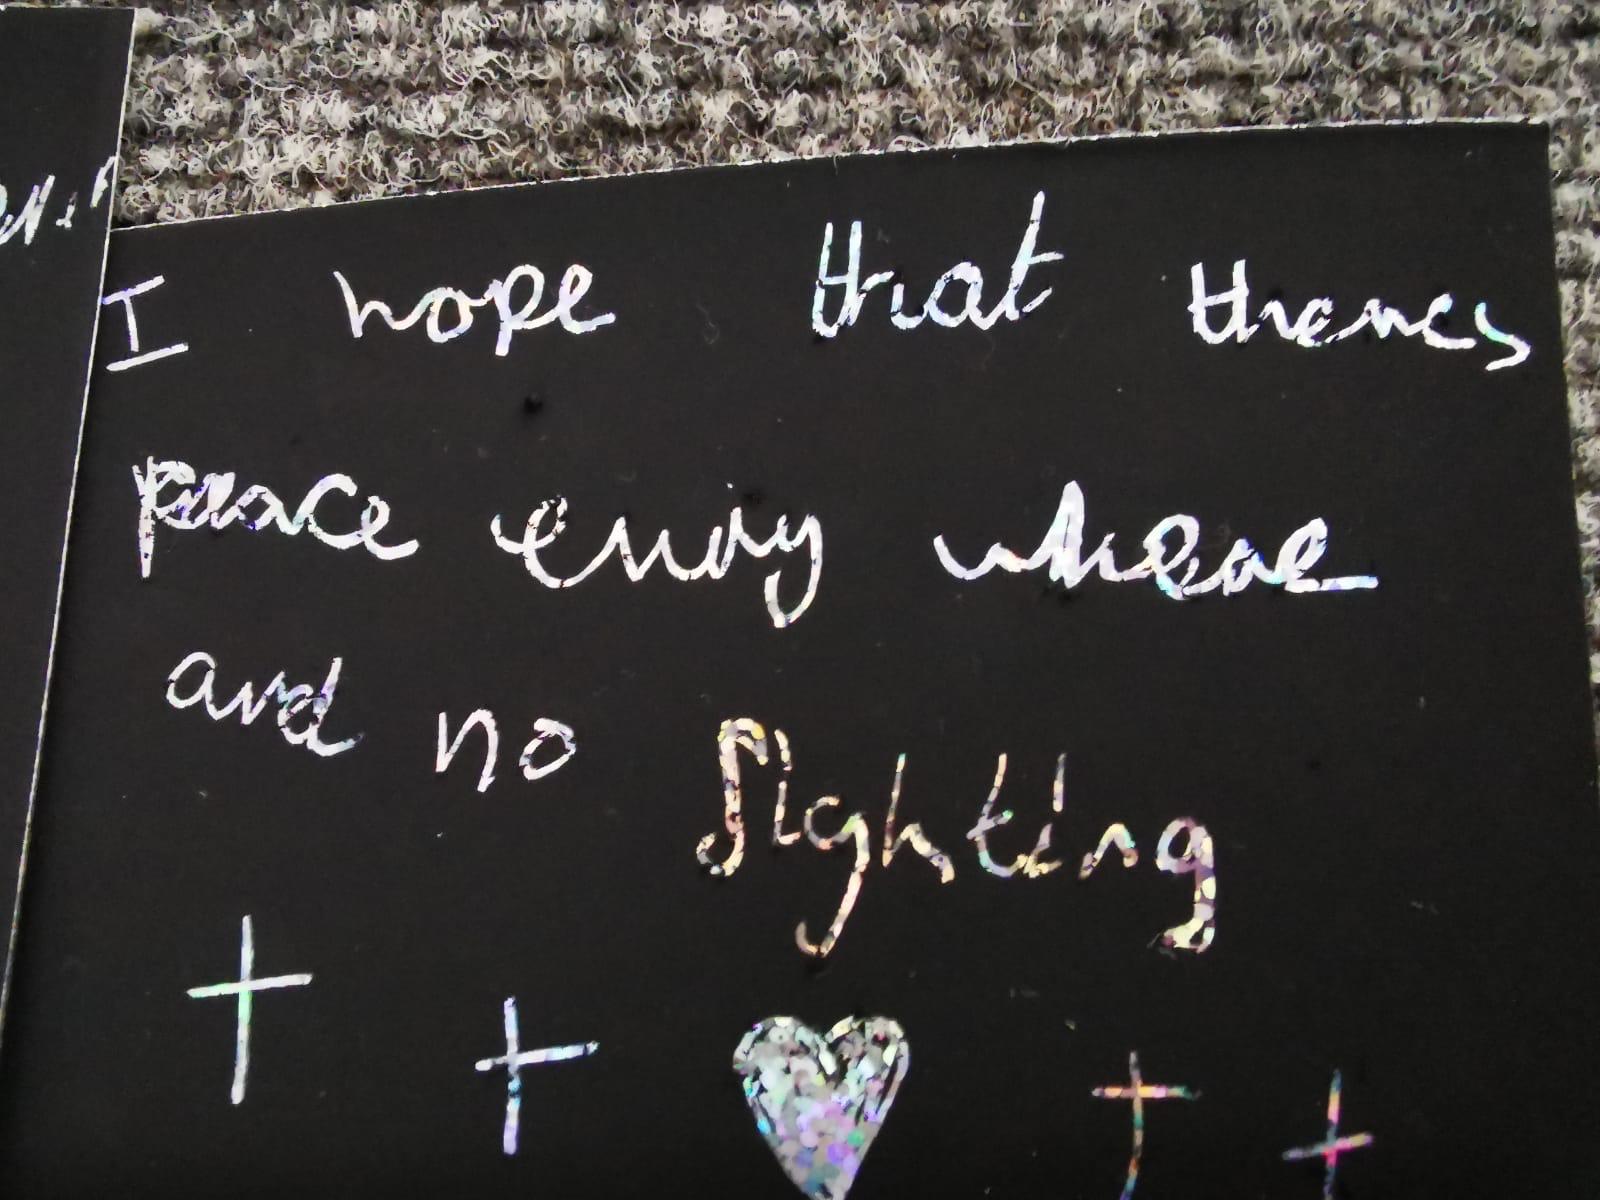 I hope that theres
peace enviy wheare
and no fighting